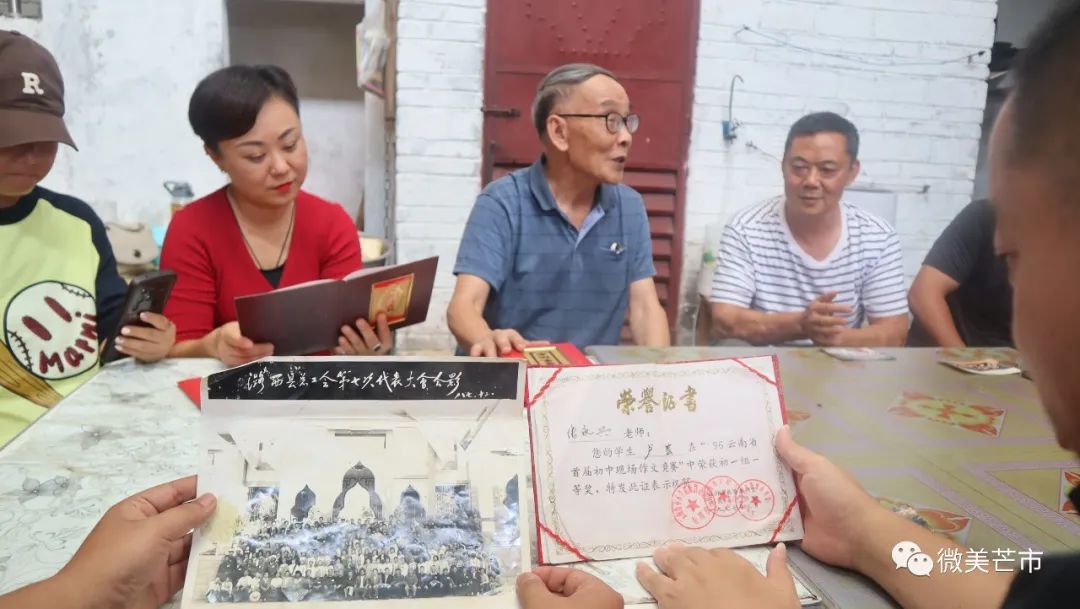 R
潞西县总工会第七次代表大会合影
八七.十二.
荣誉证书
老师：
您的学生 在“95云南省
首届初中现场作文竞赛”中荣获初一组一
等奖，特发此证表示祝贺
微美芒市